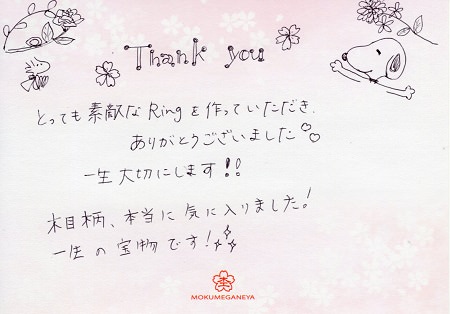 Thank you
とっても素敵なRingを作っていただき、
ありがとうございました
一生大切にします!!
木目柄、本当に気に入りました!
一生の宝物です!
MOKUMEGANEYA